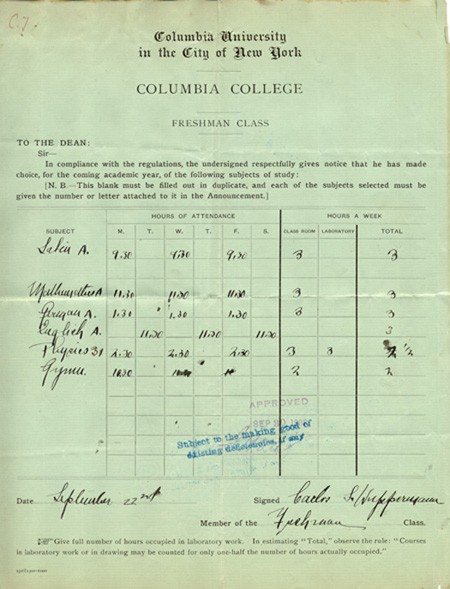 C.7.
Columbia University
in the City of New York
COLUMBIA COLLEGE
FRESHMAN CLASS
TO THE DEAN:
Sir—
In compliance with the regulations, the undersigned respectfully gives notice that he has made
choice, for the coming academic year, of the following subjects of study:
[N. B.—This blank must be filled out in duplicate, and each of the subjects selected must be
given the number or letter attached to it in the Announcement.]
HOURS OF ATTENDANCE HOURS A WEEK
SUBJECT M. T. W. T. F. S. CLASS ROOM LABORATORY TOTAL
Latin A. 9.30 9.30 9.30 3 3
Mathematics A 11.30 11.30 11.30 3 3
German A. 1.30 1.30 1.30 3 3
English A. 11.30 11.30 11.30 3
Physics 2.30 2.30 2.30 3 3 1/2
Gymn. 2 2
APPROVED
SEP
Subject to the making good of
existing deficiencies, if any
Date September 22nd Signed Carlos
Member of the Freshman Class.
"Give full number of hours occupied in laboratory work. In estimating "Total," observe the rule: "Courses
in laboratory work or in drawing may be counted for only one-half the number of hours actually occupied."